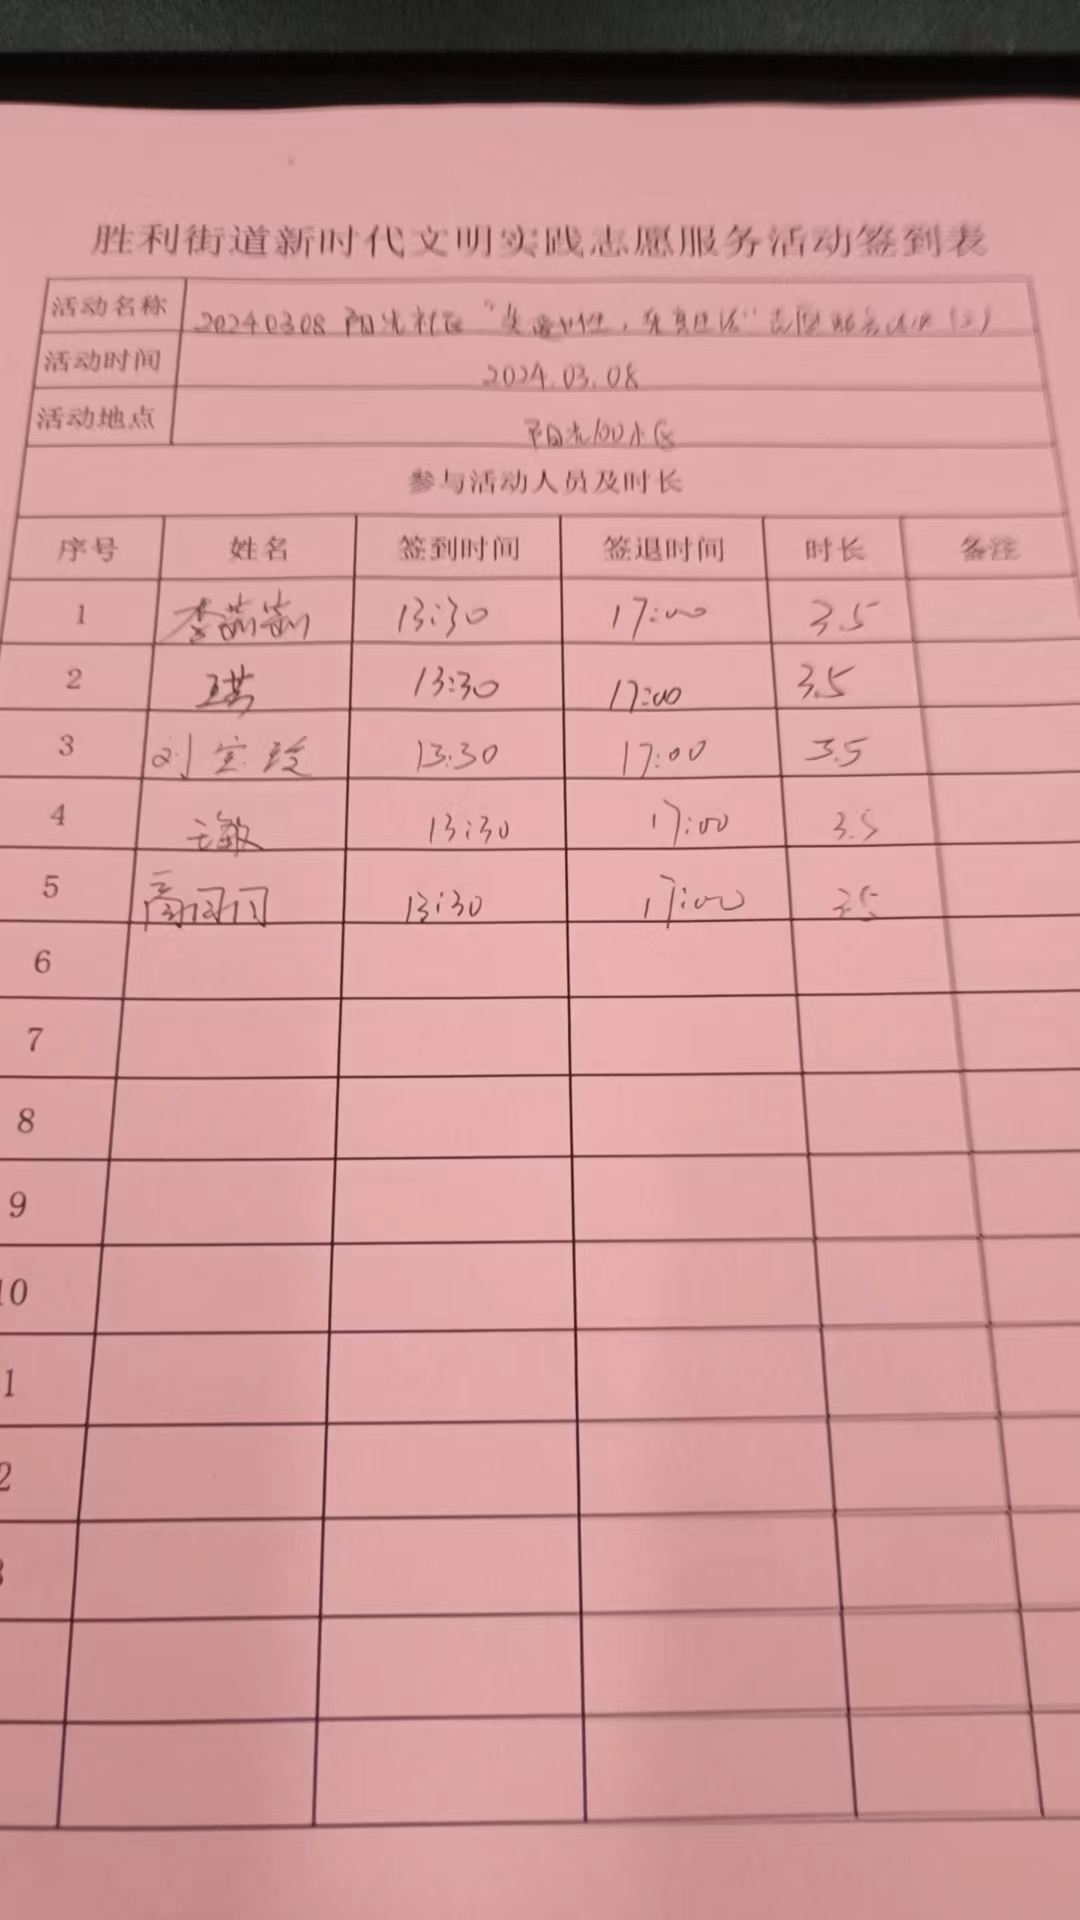 胜利街道新时代文明实践志愿服务活动签到表
活动名称 20240308 阳光社区 "美 ，享 生活" 志愿服务活动 (2)
活动时间 2024.03.08
活动地点 阳光100小区
参与活动人员及时长
序号 姓名 签到时间 签退时间 时长 备注
1 李茹茹 13:30 17:00 3.5
2 王琪 13:30 17:00 3.5
3 刘宝玲 13:30 17:00 3.5
4 王敏 13:30 17:00 3.5
5 高闪闪 13:30 17:00 3.5
6
7
8
9
10
1
2
3